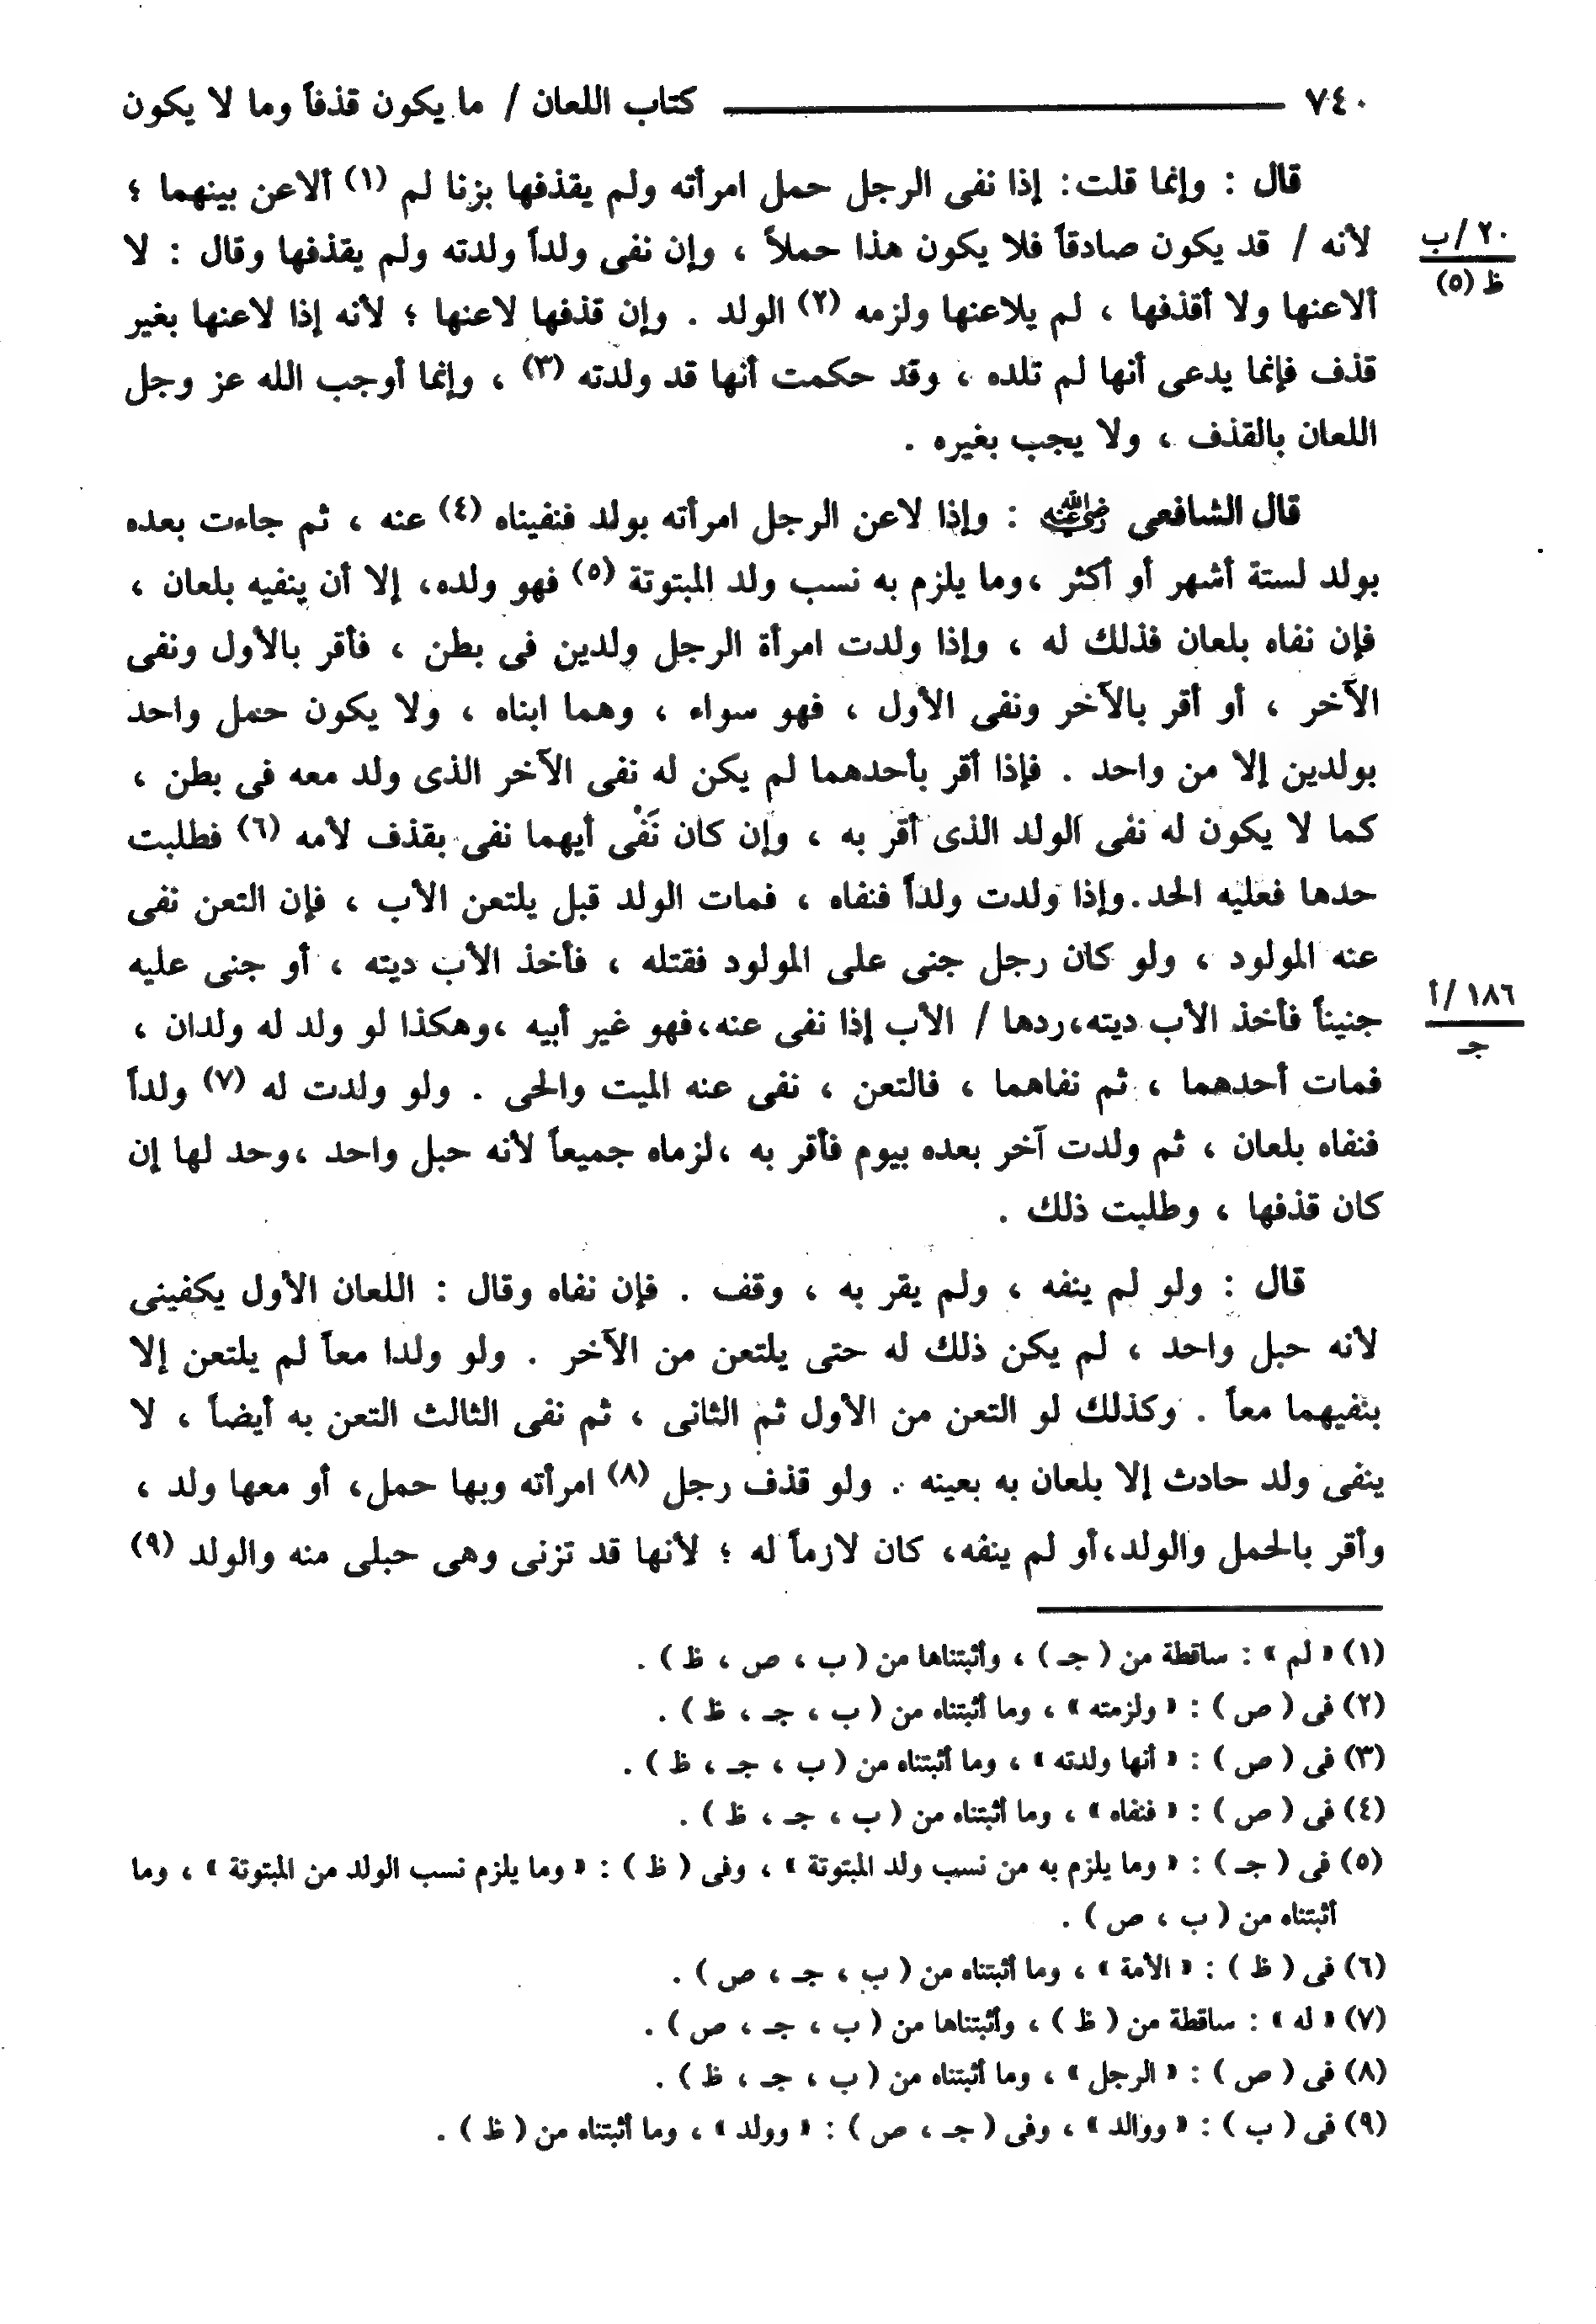 ٧٤٠ كتاب اللعان / ما يكون قذفاً وما لا يكون
قال : وإنما قلت: إذا نفى الرجل حمل امرأته ولم يقذفها بزنا لم (١) ألاعن بينهما ؛
لأنه / قد يكون صادقاً فلا يكون هذا حملاً ، وإن نفى ولداً ولدته ولم يقذفها وقال : لا
٢٠ /ب
ظ (٥)
ألاعنها ولا أقذفها ، لم يلاعنها ولزمه (٢) الولد . وإن قذفها لاعنها ؛ لأنه إذا لاعنها بغير
قذف فإنما يدعى أنها لم تلده ، وقد حكمت أنها قد ولدته (٣) ، وإنما أوجب الله عز وجل
اللعان بالقذف ، ولا يجب بغيره .
قال الشافعى رضي الله عنه : وإذا لاعن الرجل امرأته بولد فنفيناه (٤) عنه ، ثم جاءت بعده
بولد لستة أشهر أو أكثر ،وما يلزم به نسب ولد المبتوتة (٥) فهو ولده، إلا أن ينفيه بلعان ،
فإن نفاه بلعان فذلك له ، وإذا ولدت امرأة الرجل ولدين فى بطن ، فأقر بالأول ونفى
الآخر ، أو أقر بالآخر ونفى الأول ، فهو سواء ، وهما ابناه ، ولا يكون حمل واحد
بولدين إلا من واحد . فإذا أقر بأحدهما لم يكن له نفى الآخر الذى ولد معه فى بطن ،
كما لا يكون له نفى الولد الذى أقر به ، وإن كان نَفْى أيهما نفى بقذف لأمه (٦) فطلبت
حدها فعليه الحد.وإذا ولدت ولداً فنفاه ، فمات الولد قبل يلتعن الأب ، فإن التعن نفى
عنه المولود ، ولو كان رجل جنى على المولود فقتله ، فأخذ الأب ديته ، أو جنى عليه
جنيناً فأخذ الأب ديته،ردها / الأب إذا نفى عنه،فهو غير أبيه ،وهكذا لو ولد له ولدان ،
١٨٦ /أ
جـ
فمات أحدهما ، ثم نفاهما ، فالتعن ، نفى عنه الميت والحى . ولو ولدت له (٧) ولداً
فنفاه بلعان ، ثم ولدت آخر بعده بيوم فأقر به ،لزماه جميعاً لأنه حبل واحد ،وحد لها إن
كان قذفها ، وطلبت ذلك .
قال : ولو لم ينفه ، ولم يقر به ، وقف . فإن نفاه وقال : اللعان الأول يكفينى
لأنه حبل واحد ، لم يكن ذلك له حتى يلتعن من الآخر . ولو ولدا معاً لم يلتعن إلا
بنفيهما معاً . وكذلك لو التعن من الأول ثم الثانى ، ثم نفى الثالث التعن به أيضاً ، لا
ينفى ولد حادث إلا بلعان به بعينه . ولو قذف رجل (٨) امرأته وبها حمل، أو معها ولد ،
وأقر بالحمل والولد،أو لم ينفه، كان لازماً له ؛ لأنها قد تزنى وهى حبلى منه والولد (٩)
(١) « لم » : ساقطة من ( جـ ) ، وأثبتناها من ( ب ، ص ، ظ ) .
(٢) فى ( ص ) : « ولزمته » ، وما أثبتناه من ( ب ، جـ ، ظ ) .
(٣) فى ( ص ) : « أنها ولدته » ، وما أثبتناه من ( ب ، جـ ، ظ ) .
(٤) فى ( ص ) : « فنفاه » ، وما أثبتناه من ( ب ، جـ ، ظ ) .
(٥) فى ( جـ ) : « وما يلزم به من نسب ولد المبتوتة » ، وفى ( ظ ) : « وما يلزم نسب الولد من المبتوتة » ، وما
أثبتناه من ( ب ، ص ) .
(٦) فى ( ظ ) : « الأمة » ، وما أثبتناه من ( ب ، جـ ، ص ) .
(٧) « له » : ساقطة من ( ظ ) ، وأثبتناها من ( ب ، جـ ، ص ) .
(٨) فى ( ص ) : « الرجل » ، وما أثبتناه من ( ب ، جـ ، ظ ) .
(٩) فى ( ب ) : « ووالد » ، وفى ( جـ ، ص ) : « وولد » ، وما أثبتناه من ( ظ ) .